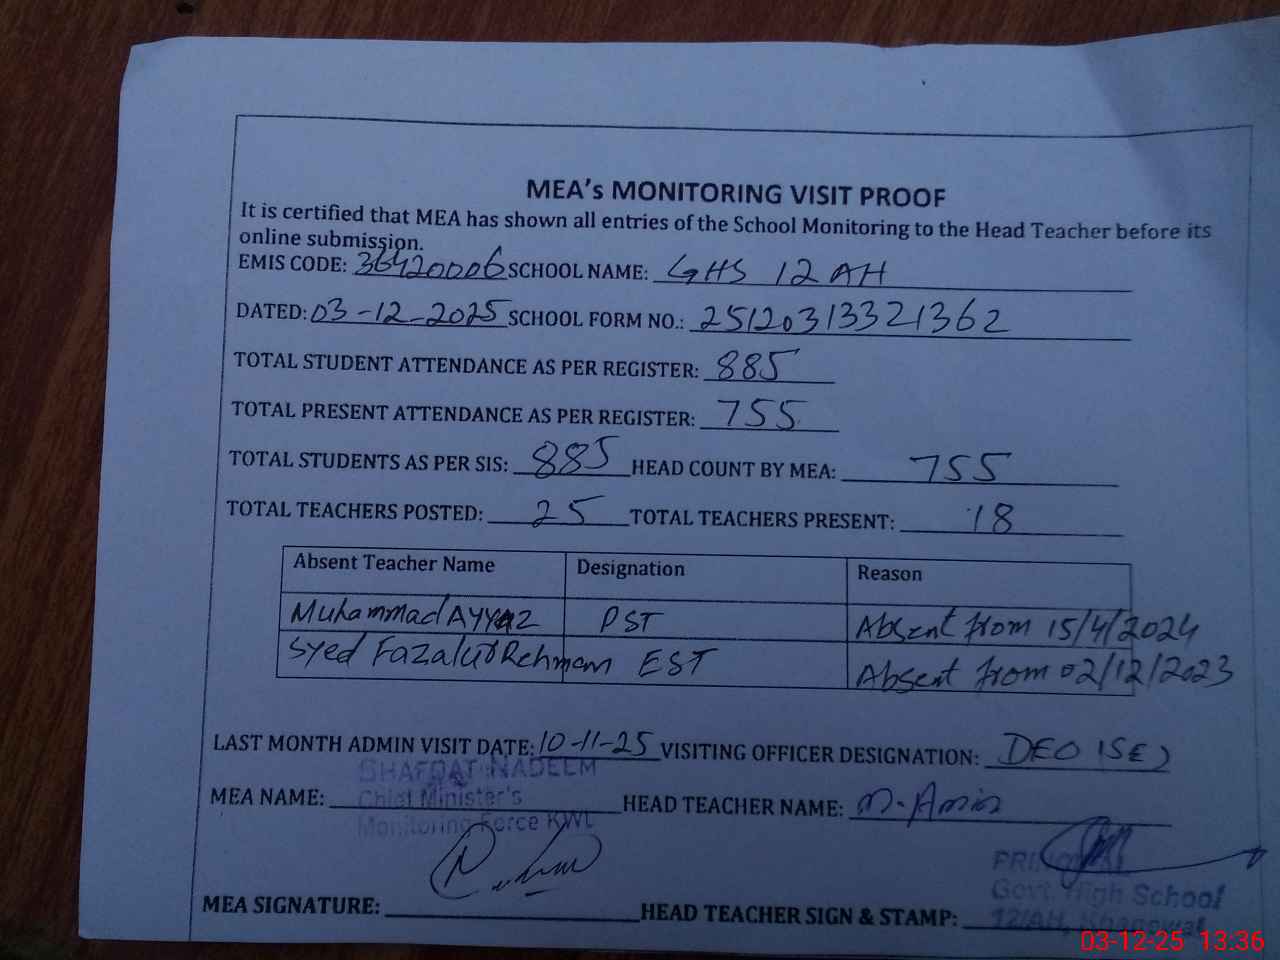 MEA's MONITORING VISIT PROOF
It is certified that MEA has shown all entries of the School Monitoring to the Head Teacher before its
online submission.
EMIS CODE: 36420006 SCHOOL NAME: GHS 12 AH
DATED: 03-12-2025 SCHOOL FORM NO.: 25120313321362
TOTAL STUDENT ATTENDANCE AS PER REGISTER: 885
TOTAL PRESENT ATTENDANCE AS PER REGISTER: 755
TOTAL STUDENTS AS PER SIS: 885 HEAD COUNT BY MEA: 755
TOTAL TEACHERS POSTED: 25 TOTAL TEACHERS PRESENT: 18
Absent Teacher Name Designation Reason
Muhammad AYYAZ PST Absent from 15/4/2024
Syed Fazal Rehman EST Absent from 02/12/2023
LAST MONTH ADMIN VISIT DATE: 10-11-25 VISITING OFFICER DESIGNATION: DEO (SE)
SHAFQAT NADEEM
MEA NAME: Chief Minister's HEAD TEACHER NAME: M. Amin
Monitoring Force KWL
PRINCIPAL
Govt. High School
MEA SIGNATURE: HEAD TEACHER SIGN & STAMP: 12/AH, Khanewal
03-12-25 13:36